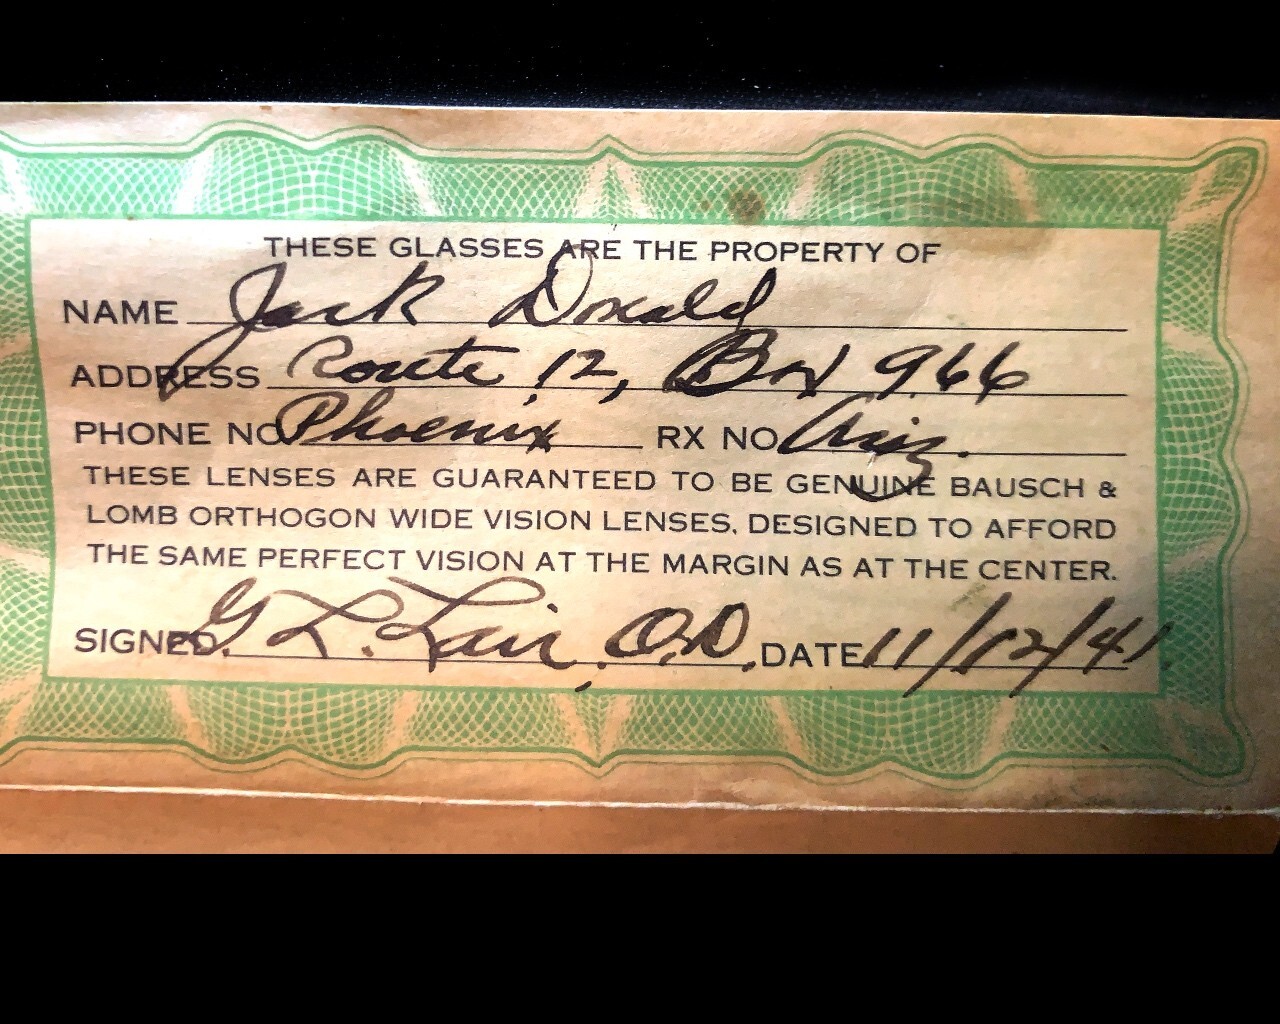 THESE GLASSES ARE THE PROPERTY OF
NAME Jack Donald
ADDRESS Route 12, Box 966
PHONE NO Phoenix RX NO Ariz.
THESE LENSES ARE GUARANTEED TO BE GENUINE BAUSCH &
LOMB ORTHOGON WIDE VISION LENSES, DESIGNED TO AFFORD
THE SAME PERFECT VISION AT THE MARGIN AS AT THE CENTER.
SIGNED G. L. Lair, O.D. DATE 11/12/41